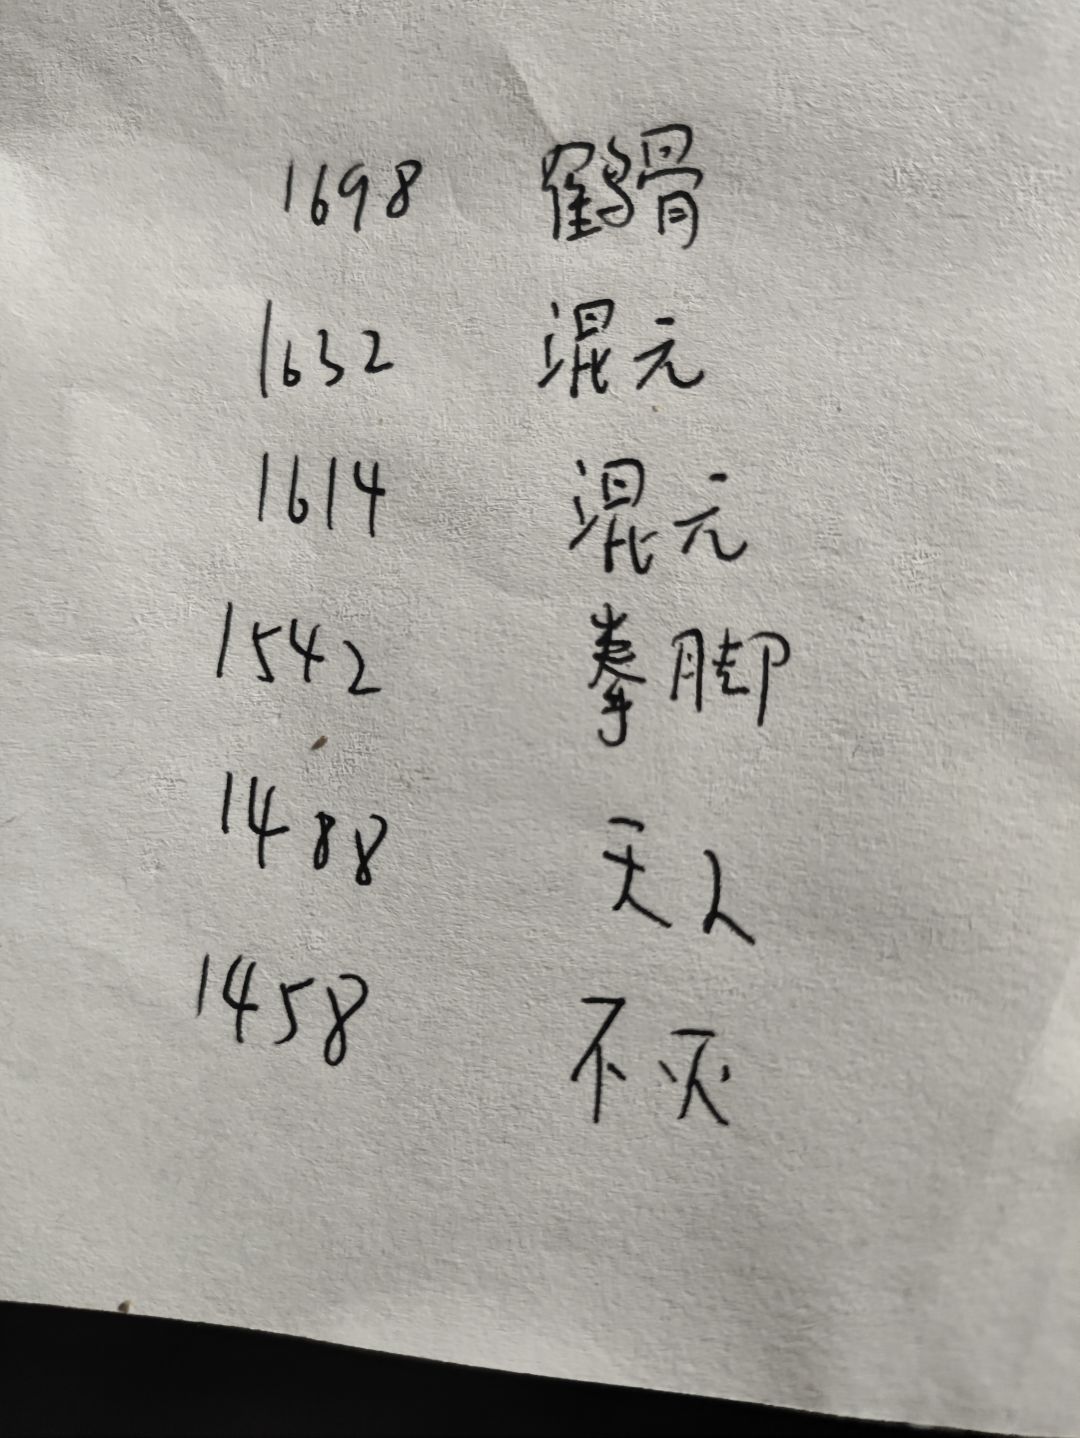 1698 鹤骨
1632 混元
1614 混元
1542 拳脚
1488 天人
1458 不灭